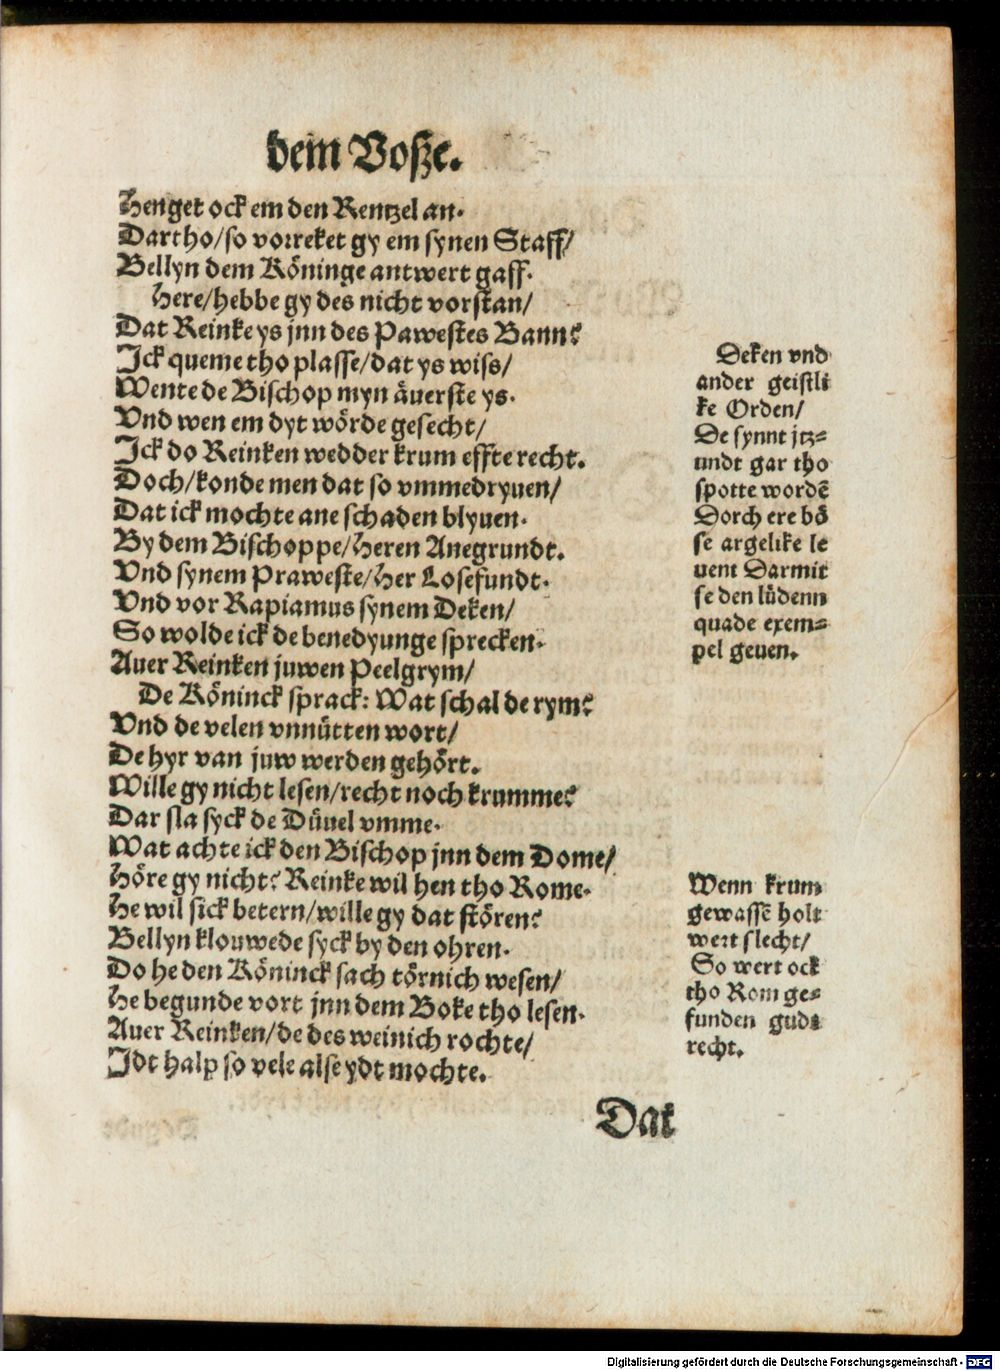 dem Voßze.
Henget ock em den Rentzel an.
Dartho/so vorreket gy em synen Staff/
Bellyn dem Köninge antwert gaff.
Here/hebbe gy des nicht vorstan/
Dat Reinke ys jnn des Pawestes Bann?
Jck queme tho plasse/dat ys wiss/
Wente de Bischop myn äuerste ys.
Vnd wen em dyt wörde gesecht/
Jck do Reinken wedder krum effte recht.
Doch/konde men dat so vmmedryuen/
Dat ick mochte ane schaden blyuen.
By dem Bischoppe/Heren Anegrundt.
Vnd synem Praweste/Her Losefundt.
Vnd vor Rapiamus synem Deken/
So wolde ick de benedyunge sprecken.
Auer Reinken juwen Peelgrym/
De Köninck sprack: Wat schal de rym?
Vnd de velen vnnütten wort/
De hyr van juw werden gehört.
Wille gy nicht lesen/recht noch krumme?
Dar sla syck de Düuel vmme.
Wat achte ick den Bischop jnn dem Dome/
Höre gy nicht? Reinke wil hen tho Rome.
He wil sick betern/wille gy dat stören?
Bellyn klouwede syck by den ohren.
Do he den Köninck sach törnich wesen/
He begunde vort jnn dem Boke tho lesen.
Auer Reinken/de des weinich rochte/
Jdt halp so vele alse ydt mochte.
Dat
Deken vnd
ander geistli
ke Orden/
De synnt jtz=
undt gar tho
spotte wordē
Dorch ere bö
se argelike le
uent Darmit
se den lüdenn
quade exem=
pel geuen.
Wenn krum
gewassē holt
wert slecht/
So wert ock
tho Rom ge=
funden gude
recht.
Digitalisierung gefördert durch die Deutsche Forschungsgemeinschaft - DFG